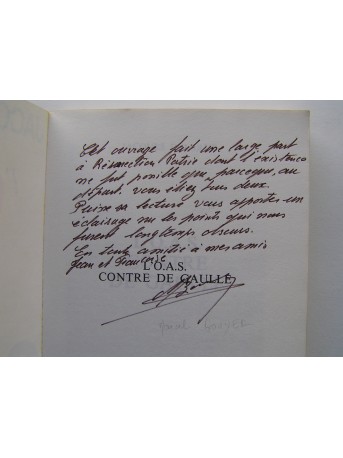 Cet ouvrage fait une large part
à Résurrection Patrie dont l'existence
ne fut possible que, parceque, au
départ, vous étiez tous deux.
Puisse sa lecture vous apporter un
éclairage sur les points qui nous
furent longtemps obscurs.
En toute amitié à mes amis
Jean et Françoise
L'O.A.S.
CONTRE DE GAULLE